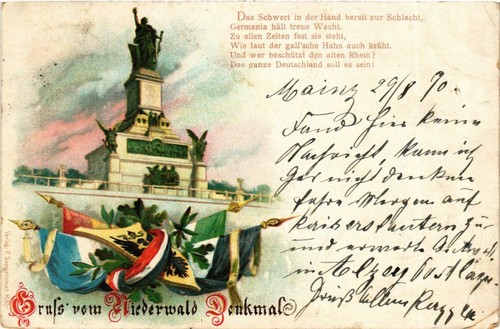 Das Schwert in der Hand bereit zur Schlacht,
Germania hält treue Wacht.
Zu allen Zeiten fest sie steht,
Wie laut der gall'sche Hahn auch kräht.
Und wer beschützt den alten Rhein?
Das ganze Deutschland soll es sein!
Mainz 29/8
Fand hier keine
Nachricht, kann ich
gar nicht denken
fahre Morgen auf
Kaiserslautern zu
und erwarte
in Alzey postlag.
Gruß
Gruss vom Niederwald Denkmal